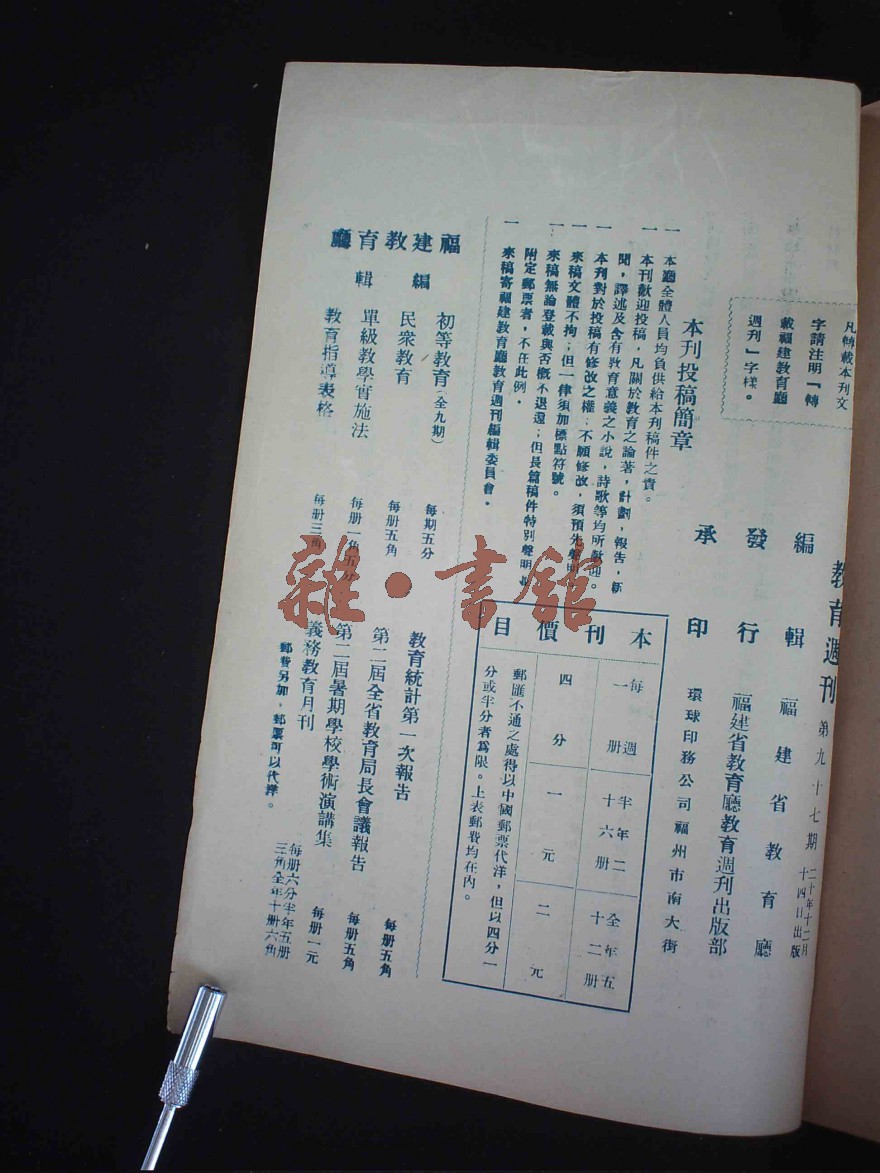 教育週刊 第九十七期 二十年十二月十四日出版
編輯 福建省教育廳
發行 福建省教育廳教育週刊出版部
承印 環球印務公司福州市南大街
凡轉載本刊文
字請注明「轉
載福建教育廳
週刊」字樣。
本刊投稿簡章
一 本廳全體人員均負供給本刊稿件之責。
一 本刊歡迎投稿,凡關於教育之論著,計劃,報告,新
聞,譯述及含有教育意義之小說,詩歌等均所歡迎。
一 本刊對於投稿有修改之權;不願修改,須預先聲明。
一 來稿文體不拘;但一律須加標點符號。
一 來稿無論登載與否概不退還;但長篇稿件特別聲明並
附定郵票者,不在此例。
一 來稿寄福建教育廳教育週刊編輯委員會。
本刊價目
每週一册 半年二十六册 全年五十二册
四分 一元 二元
郵匯不通之處得以中國郵票代洋,但以四分一
分或半分者為限。上表郵費均在內。
福建教育廳編輯
初等教育(全九期) 每期五分
民衆教育 每册五角
單級教學實施法 每册一角五分
教育指導表格 每册三角
教育統計第一次報告 每册五角
第二屆全省教育局長會議報告 每册五角
第二屆暑期學校學術演講集 每册一元
義務教育月刊 每册六分半年五册三角全年十册六角
郵費另加,郵票可以代洋。
雜·書館